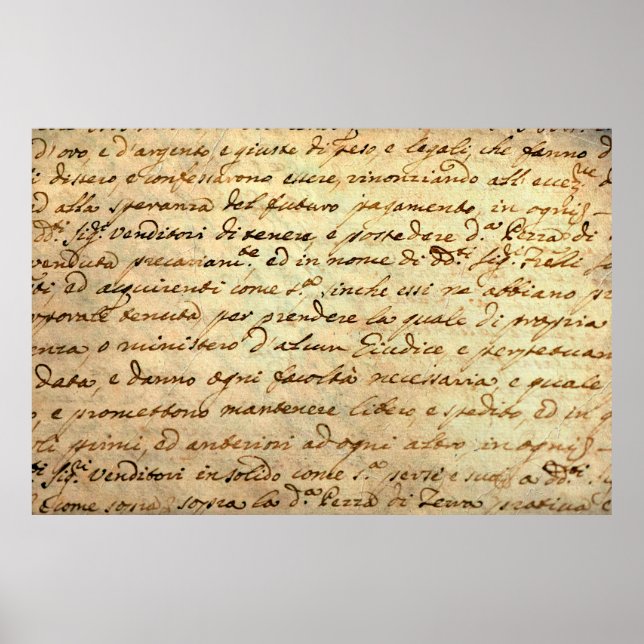 d'oro, e d'argento, e giuste di peso, e legali, che fanno d
si dissero e confessarono essere, rinonziando all' eccez.ne
ed alla speranza del futuro pagamento, in ogni
dd.ti Sig.ri Venditori di tenere, e possedere d.a Pezza di
venduta precariam.te ed in nome di dd.ti Sig.ri Frelli
ti, ed acquirenti come s.a, finche essi ne abbiano pr
corporale tenuta per prendere la quale di propria
enza o ministero d'alcun Giudice, e perpetuam
data, e danno ogni facoltà necessaria, e quale
o, e promettono mantenere libero, e spedito, ed in q
oli primi, ed anteriori ad ogni altro in ogni
ti Sig.ri Venditori in solido come s.a per se, e suoi a dd.ti
e come sopra sopra la d.a Pezza di Terra prativa